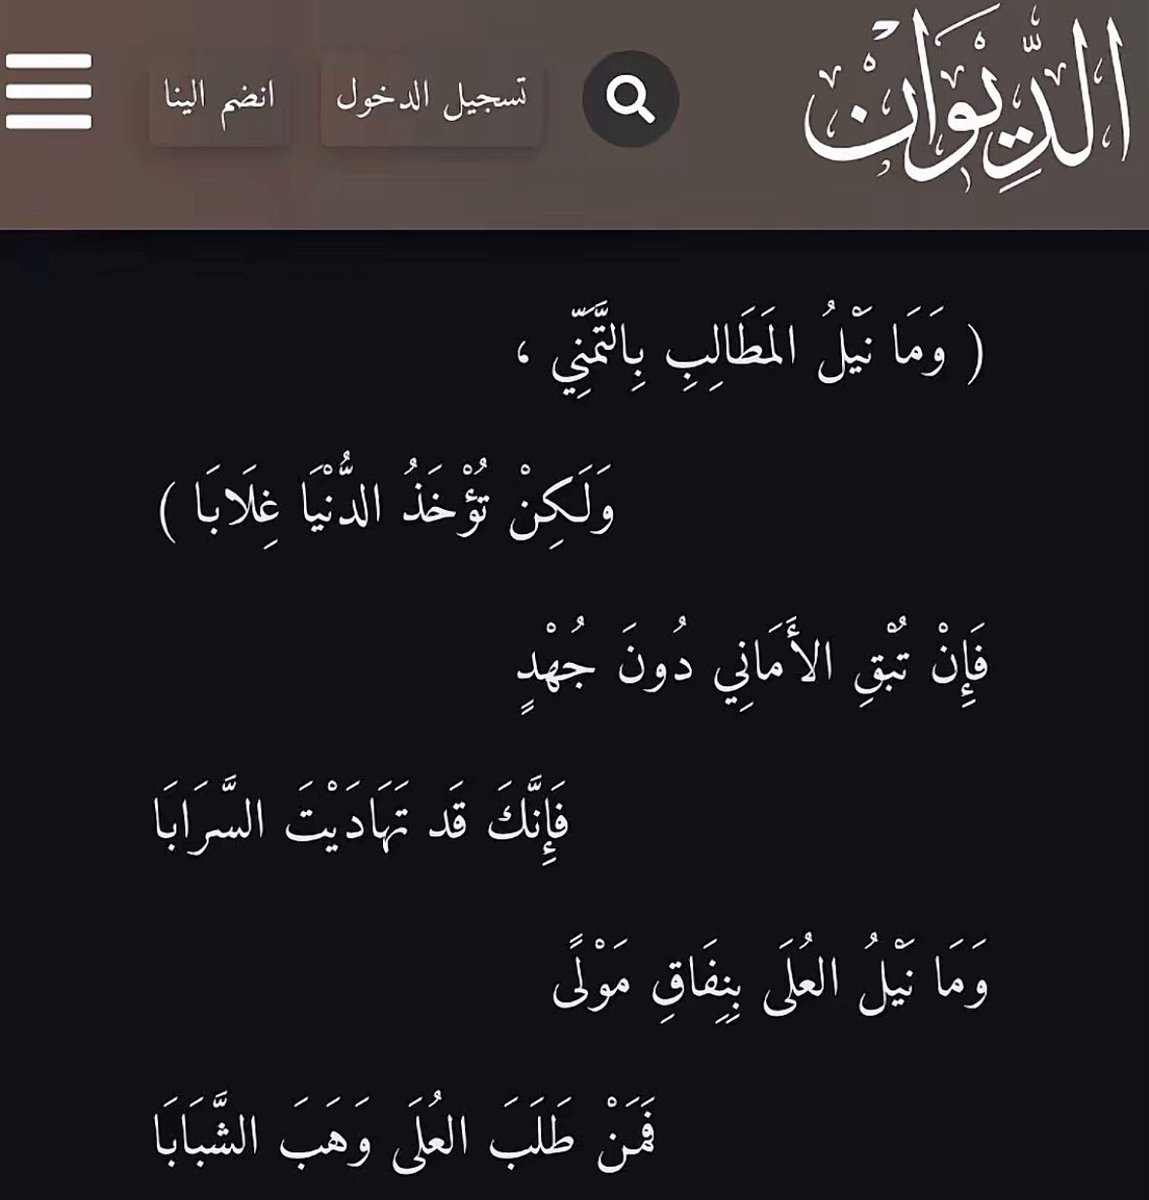 الدِّيوَانْ
تسجيل الدخول
انضم الينا
( وَمَا نَيْلُ المَطَالِبِ بِالتَّمَنِّي ،
وَلَكِنْ تُؤْخَذُ الدُّنْيَا غِلَابَا )
فَإِنْ تُبْقِ الأَمَانِي دُونَ جُهْدٍ
فَإِنَّكَ قَد تَهَادَيْتَ السَّرَابَا
وَمَا نَيْلُ العُلَى بِنِفَاقِ مَوْلًى
فَمَنْ طَلَبَ العُلَى وَهَبَ الشَّبَابَا